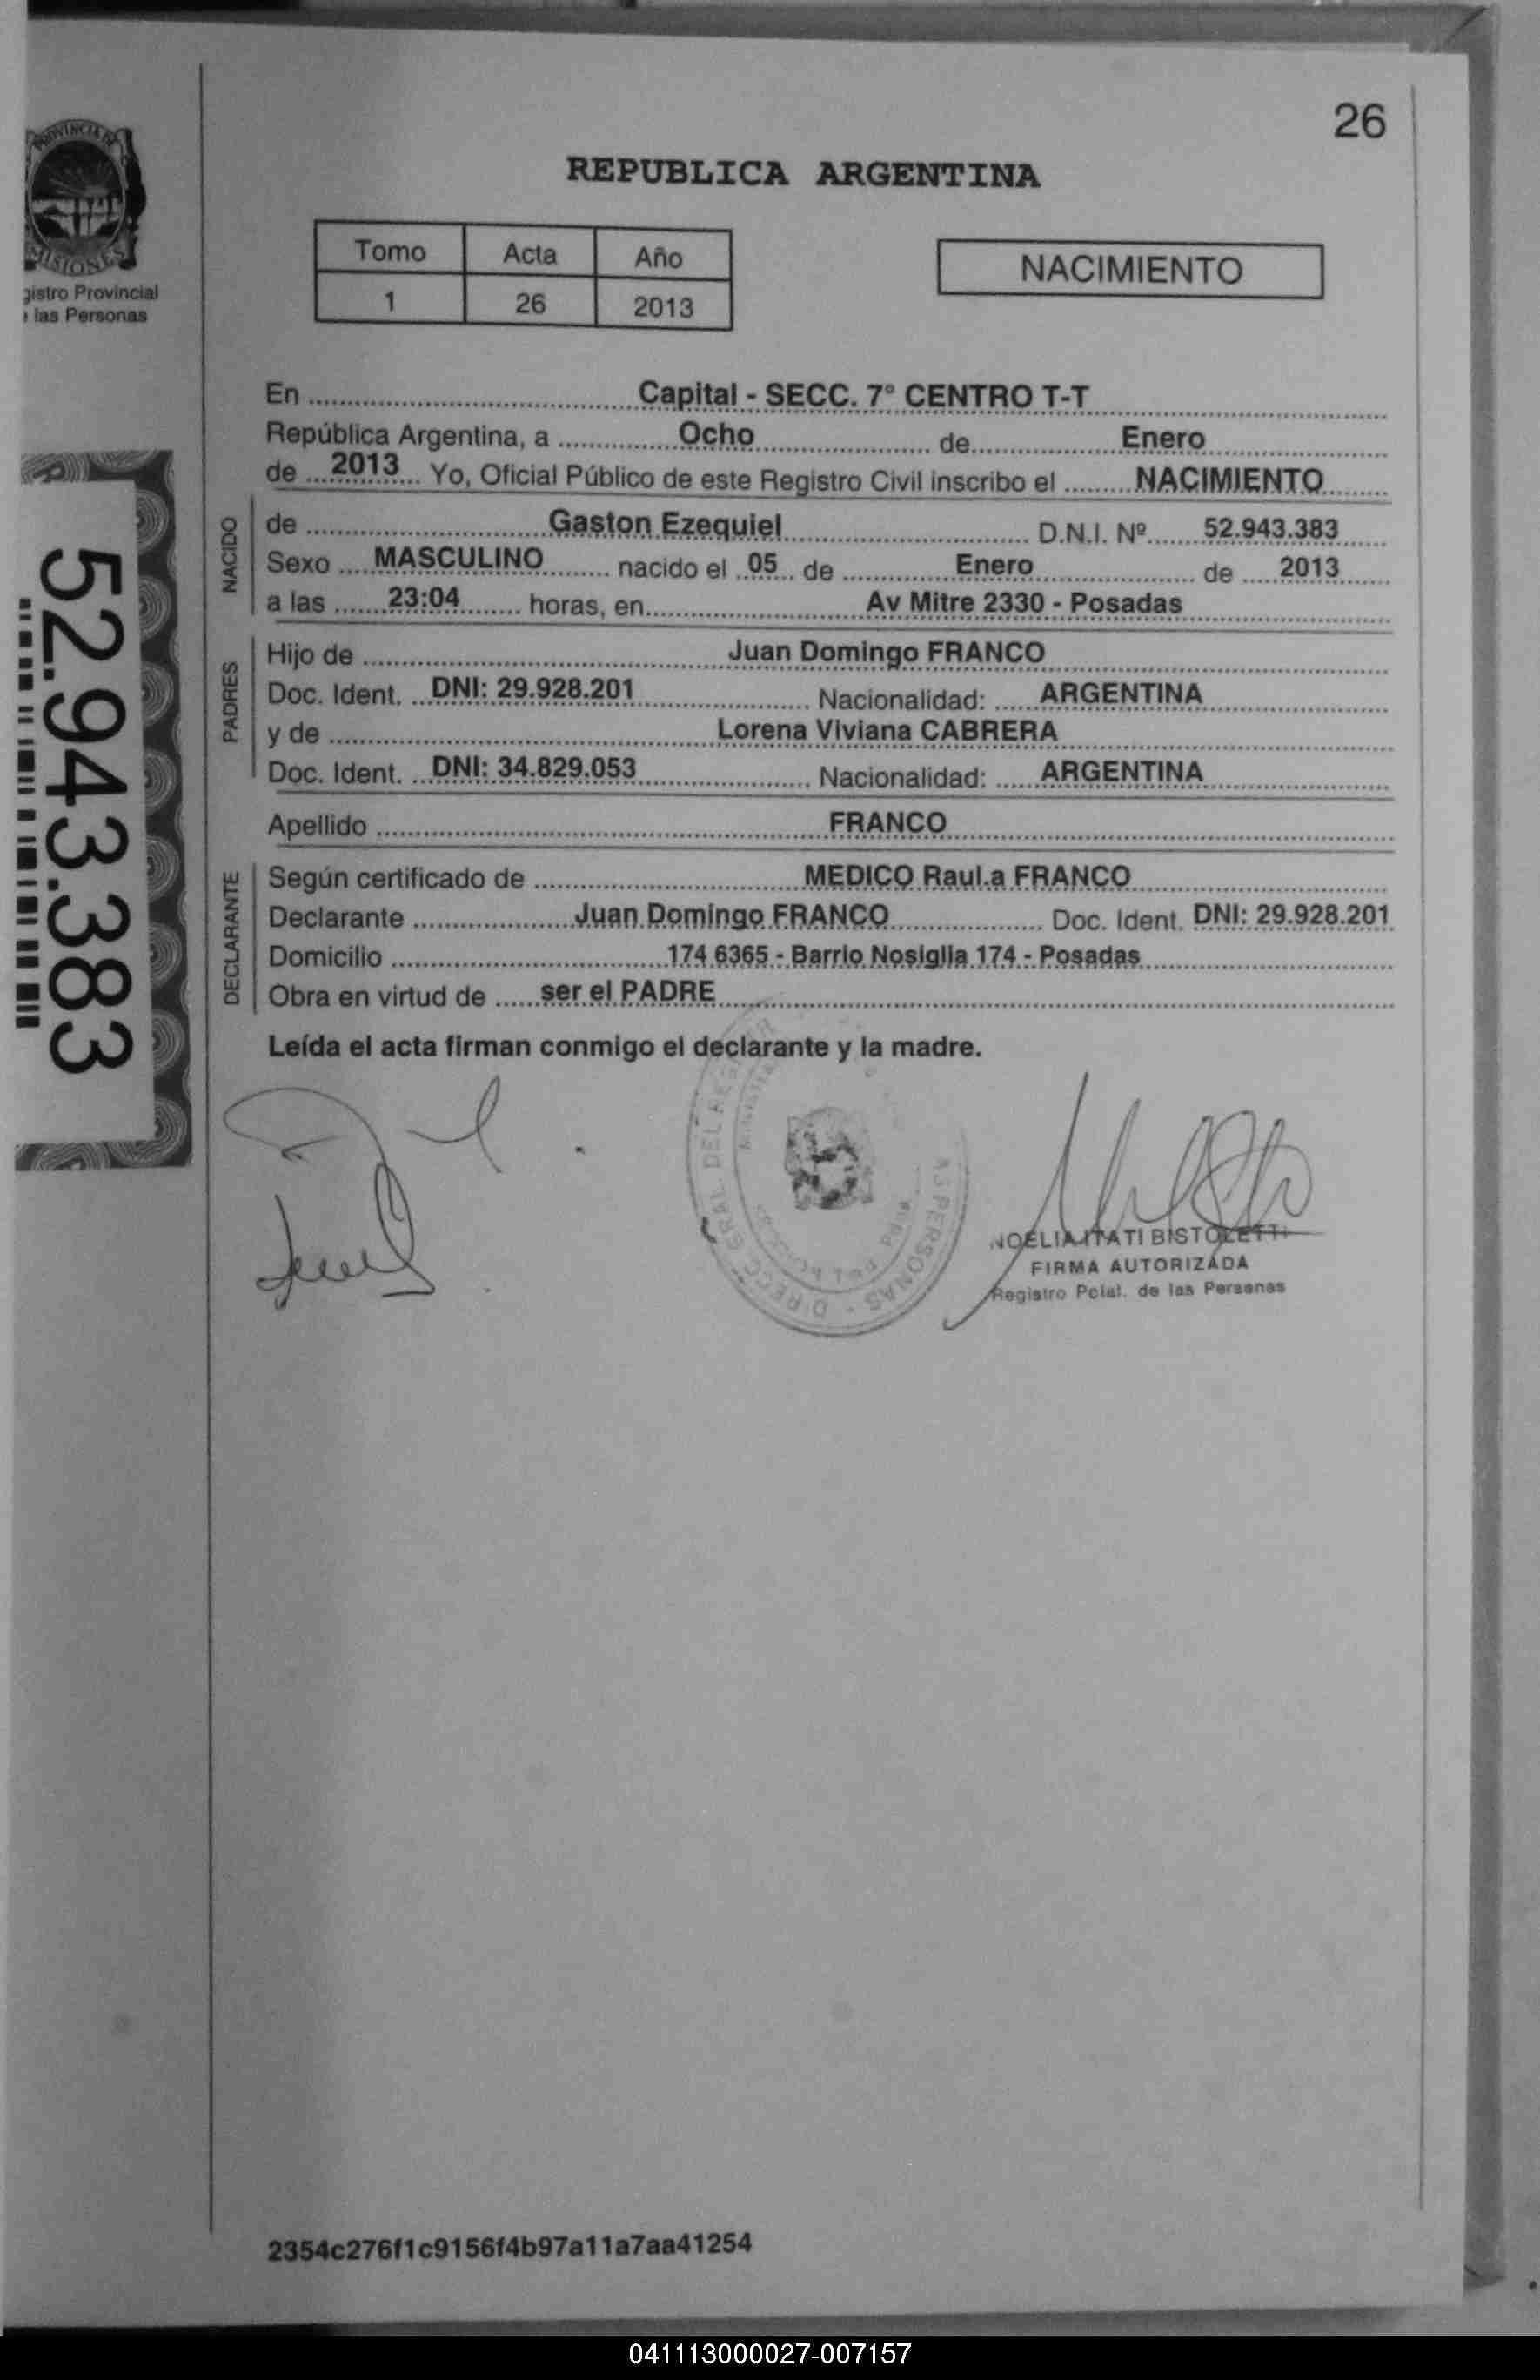 26
PROVINCIA DE
MISIONES
gistro Provincial
las Personas
REPUBLICA ARGENTINA
Tomo Acta Año
1 26 2013
NACIMIENTO
En Capital - SECC. 7° CENTRO T-T
República Argentina, a Ocho de Enero
de 2013 Yo, Oficial Público de este Registro Civil inscribo el NACIMIENTO
NACIDO
de Gaston Ezequiel D.N.I. Nº 52.943.383
Sexo MASCULINO nacido el 05 de Enero de 2013
a las 23:04 horas, en Av Mitre 2330 - Posadas
PADRES
Hijo de Juan Domingo FRANCO
Doc. Ident. DNI: 29.928.201 Nacionalidad: ARGENTINA
y de Lorena Viviana CABRERA
Doc. Ident. DNI: 34.829.053 Nacionalidad: ARGENTINA
Apellido FRANCO
DECLARANTE
Según certificado de MEDICO Raul.a FRANCO
Declarante Juan Domingo FRANCO Doc. Ident. DNI: 29.928.201
Domicilio 174 6365 - Barrio Nosiglia 174 - Posadas
Obra en virtud de ser el PADRE
Leída el acta firman conmigo el declarante y la madre.
52.943.383
NOELIA ITATI BISTOLETTI
FIRMA AUTORIZADA
Registro Pcial. de las Personas
2354c276f1c9156f4b97a11a7aa41254
041113000027-007157